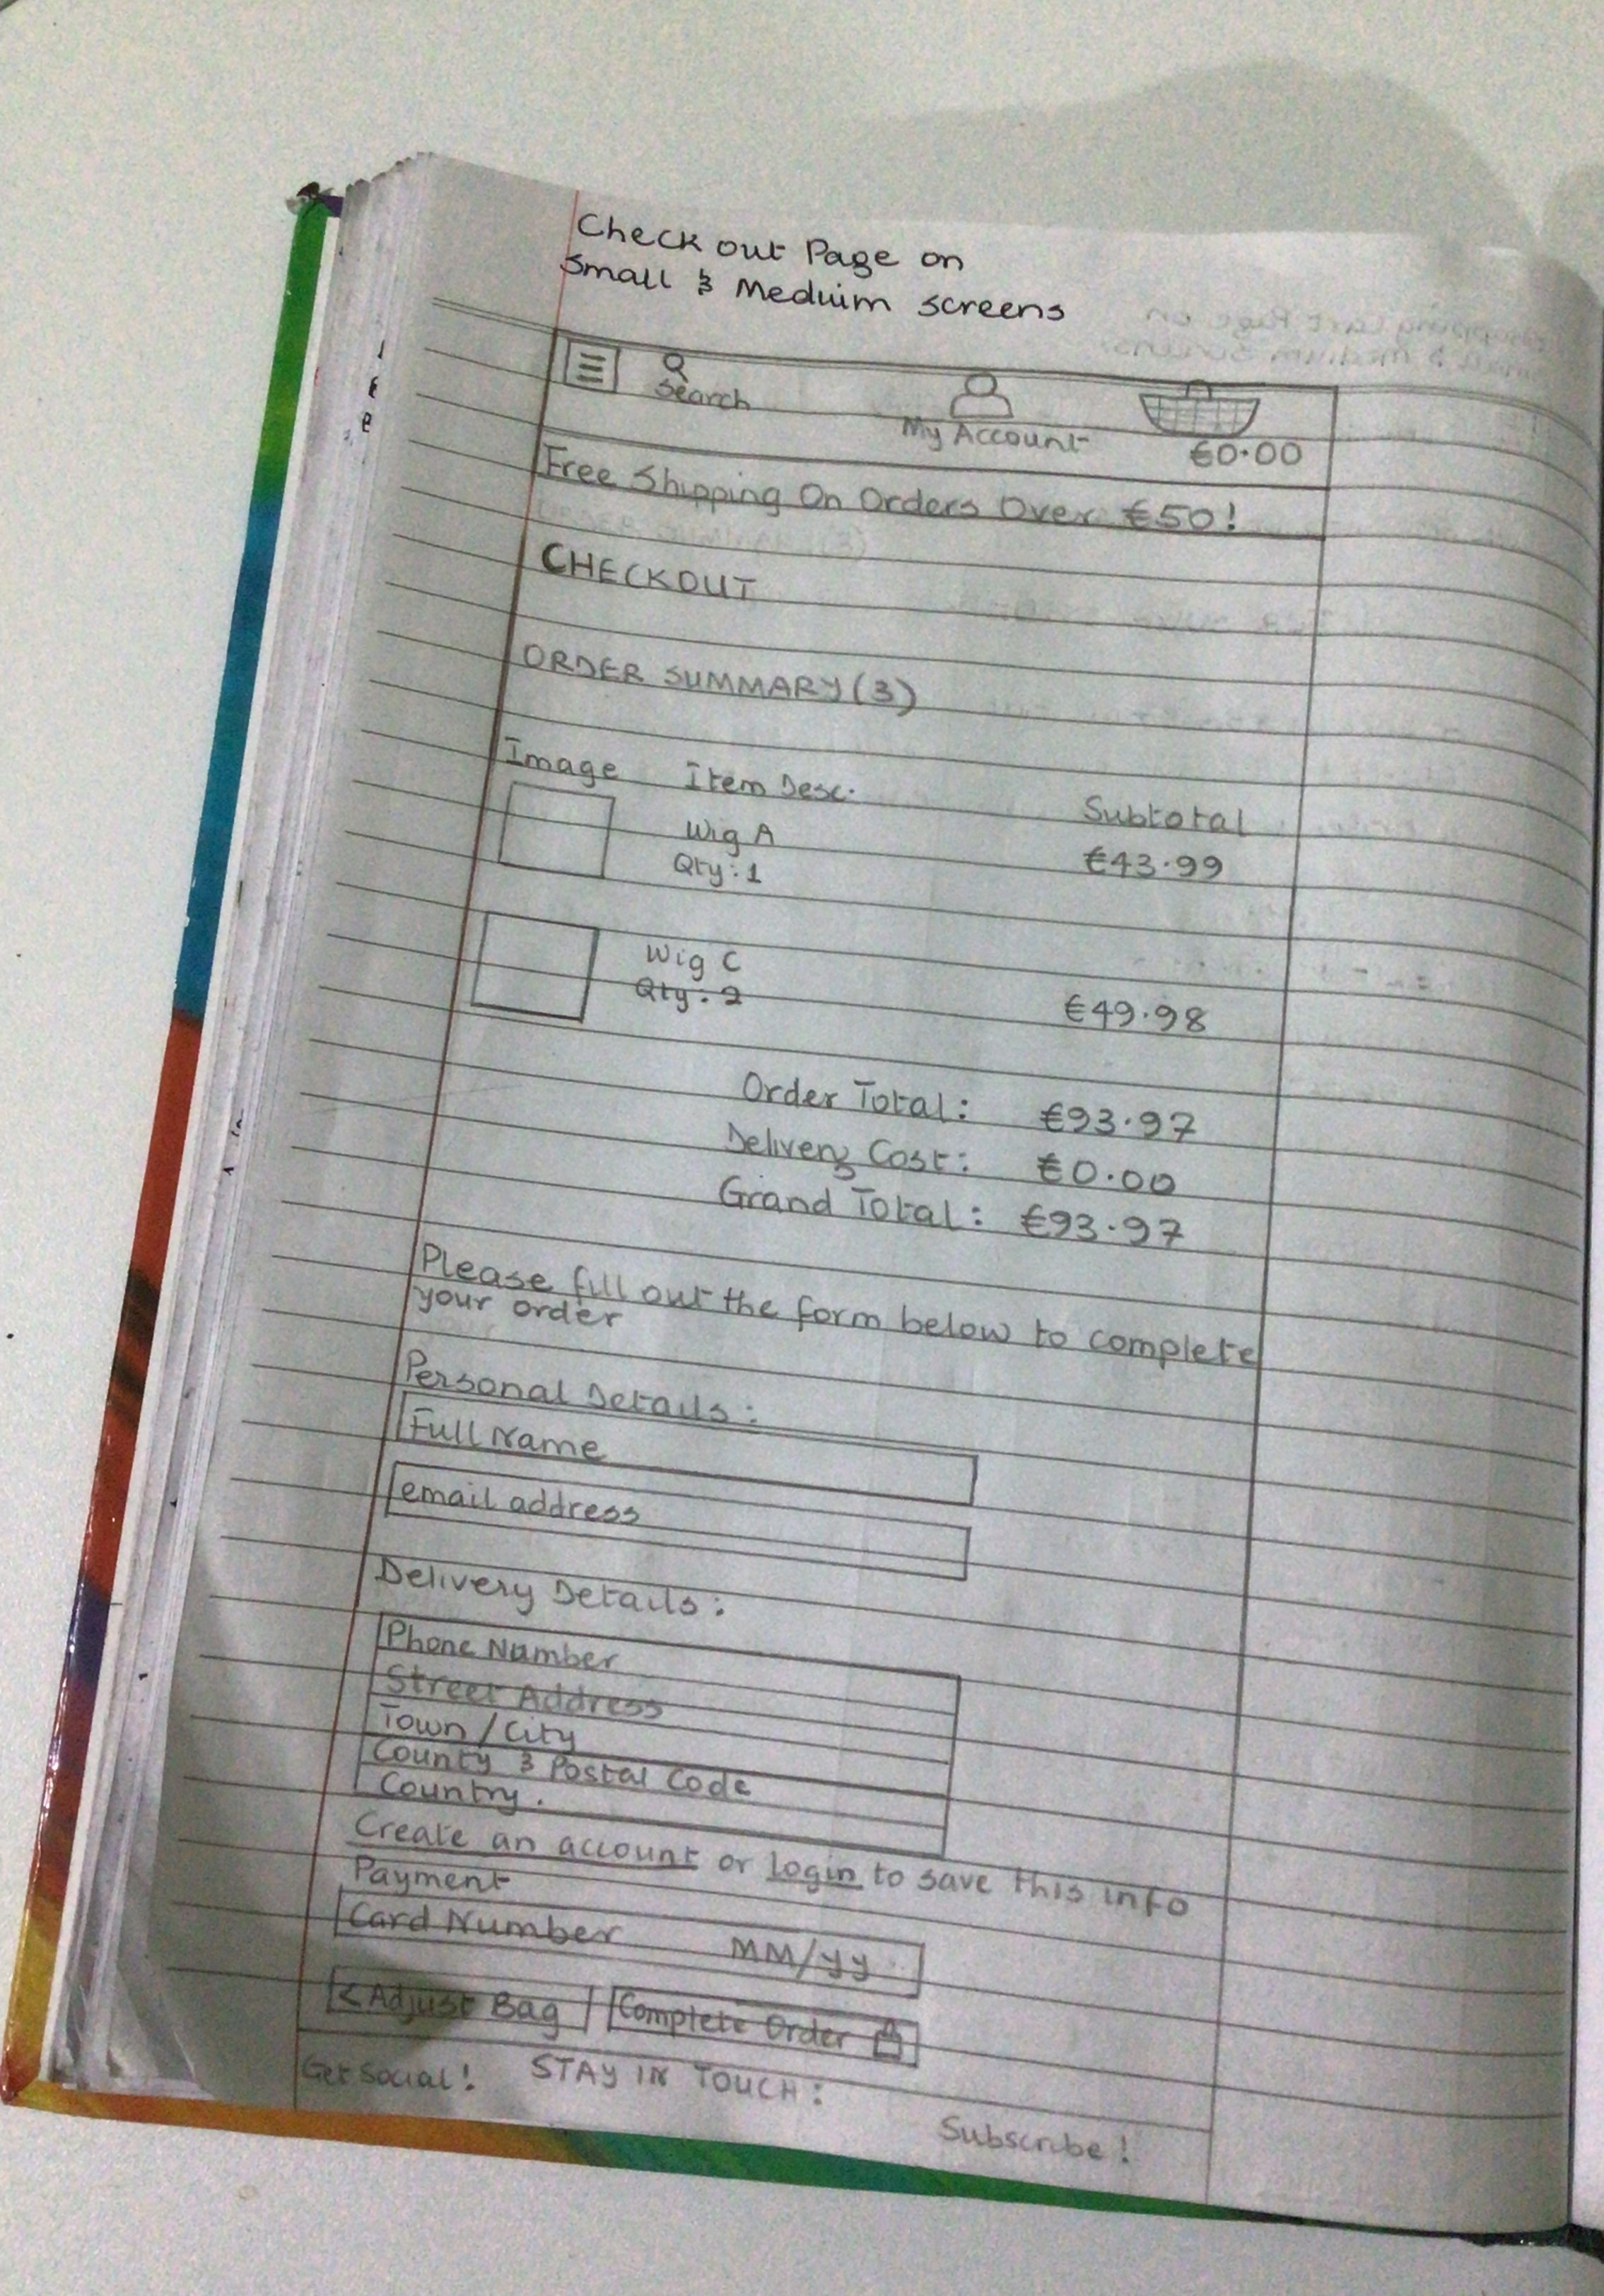 Check out Page on
Small & Meduim screens
Search
My Account
€0.00
Free Shipping On Orders Over €50!
CHECKOUT
ORDER SUMMARY (3)
Image Item Desc. Subtotal
Wig A €43.99
Qty: 1
Wig C
Qty: 2 €49.98
Order Total: €93.97
Delivery Cost: €0.00
Grand Total: €93.97
Please fill out the form below to complete
your order
Personal Details:
Full Name
email address
Delivery Details:
Phone Number
Street Address
Town / City
County & Postal Code
Country.
Create an account or login to save this info
Payment
Card Number MM/yy
< Adjust Bag Complete Order
Get Social! STAY IN TOUCH:
Subscribe!